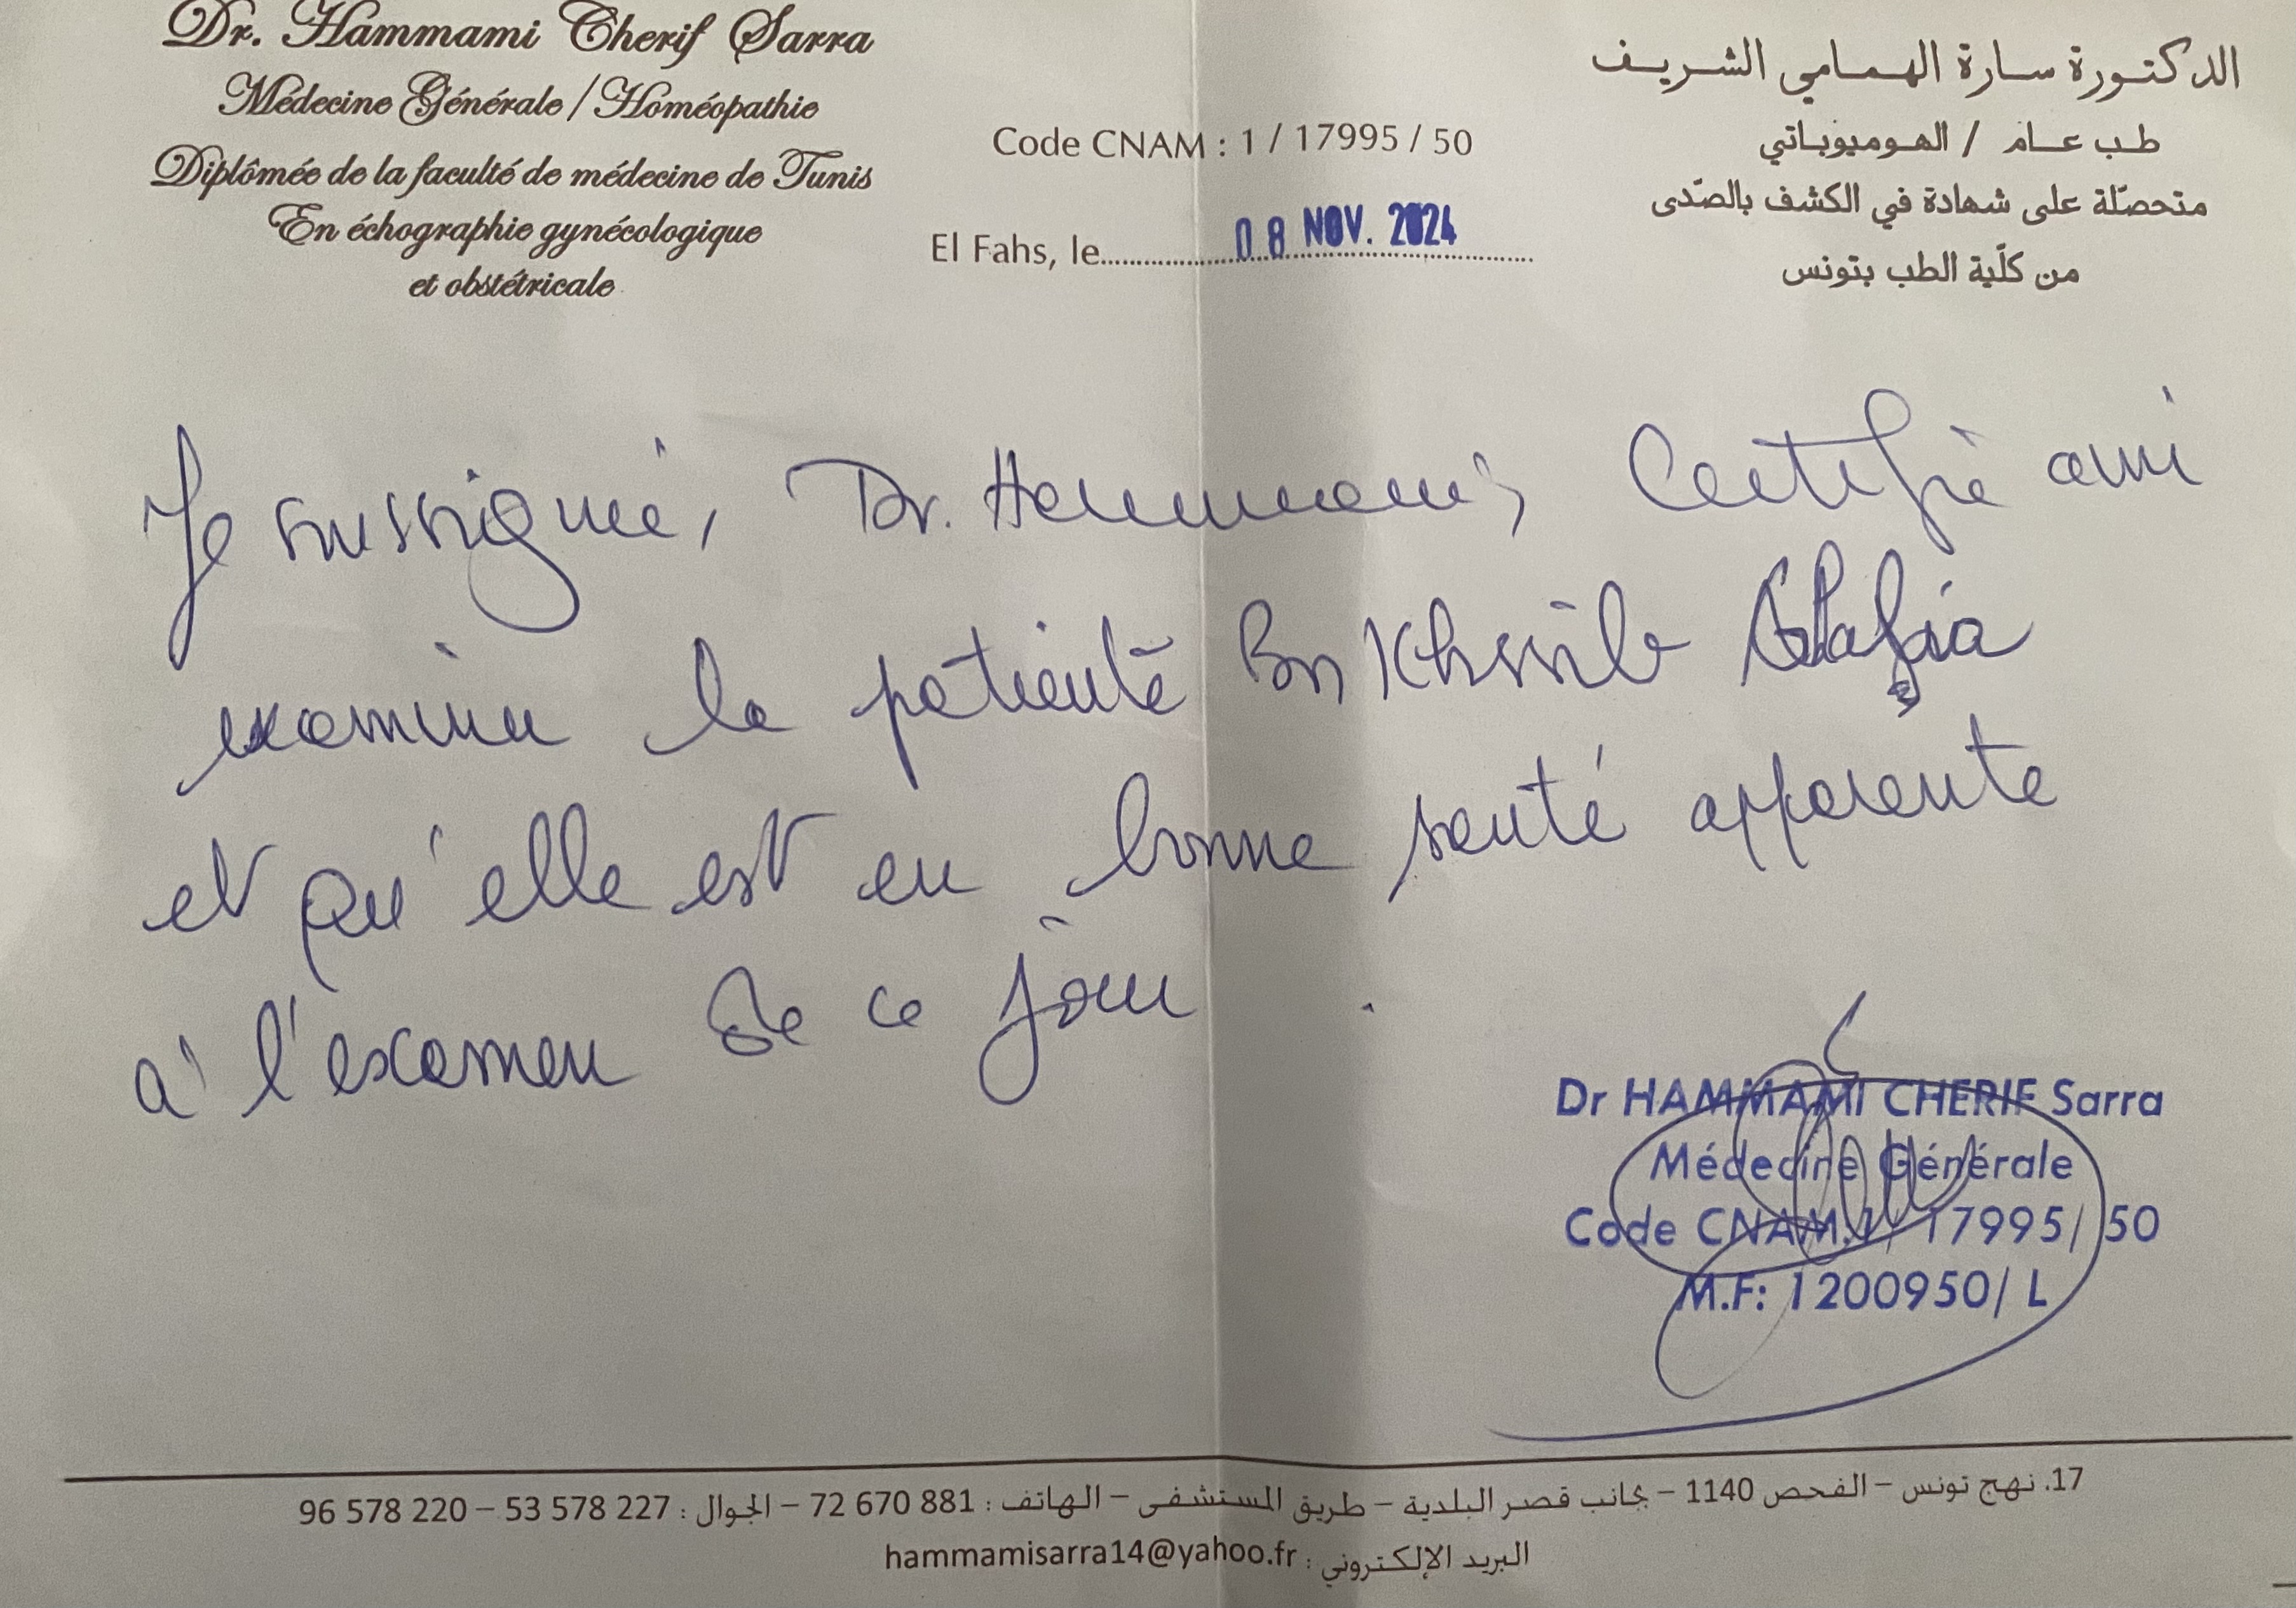 Dr. Hammami Cherif Sarra
Médecine Générale / Homéopathie
Diplômée de la faculté de médecine de Tunis
En échographie gynécologique
et obstétricale
Code CNAM : 1 / 17995 / 50
El Fahs, le 08 NOV. 2024
الدكتورة سارة الهمامي الشريف
طب عام / الهوميوباتي
متحصّلة على شهادة في الكشف بالصّدى
من كلّية الطب بتونس
Je soussignée, Dr. Hammami, Certifie avoir
examiner la patiente Bn Khssib
et qu'elle est en bonne santé apparente
à l'examen de ce jour.
Dr HAMMAMI CHERIF Sarra
Médecine Générale
Code CNAM.1/ 17995/ 50
M.F: 1200950/ L
17. نهج تونس – الفحص 1140 – بجانب قصر البلدية – طريق المستشفى – الهاتف : 72 670 881 – الجوال : 53 578 227 – 96 578 220
البريد الإلكتروني : hammamisarra14@yahoo.fr